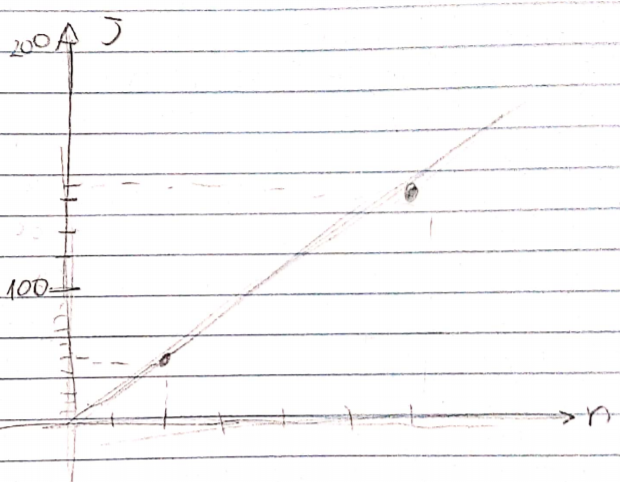 200 J
100
n